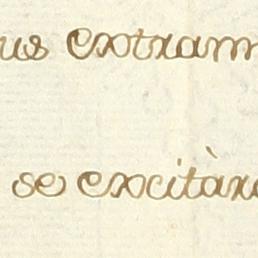 us extram
se excitàra